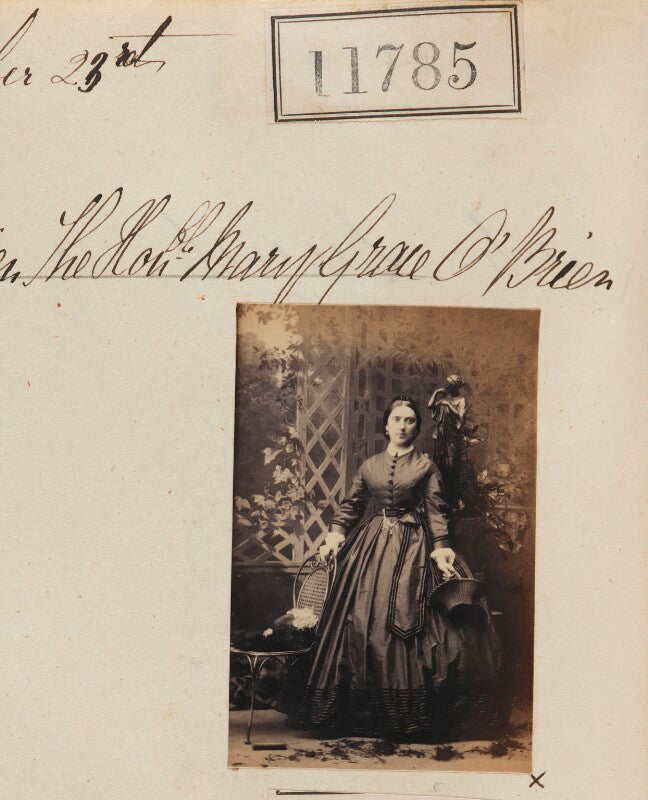 er 23rd
11785
en The Honble Mary Grace O'Brien
x